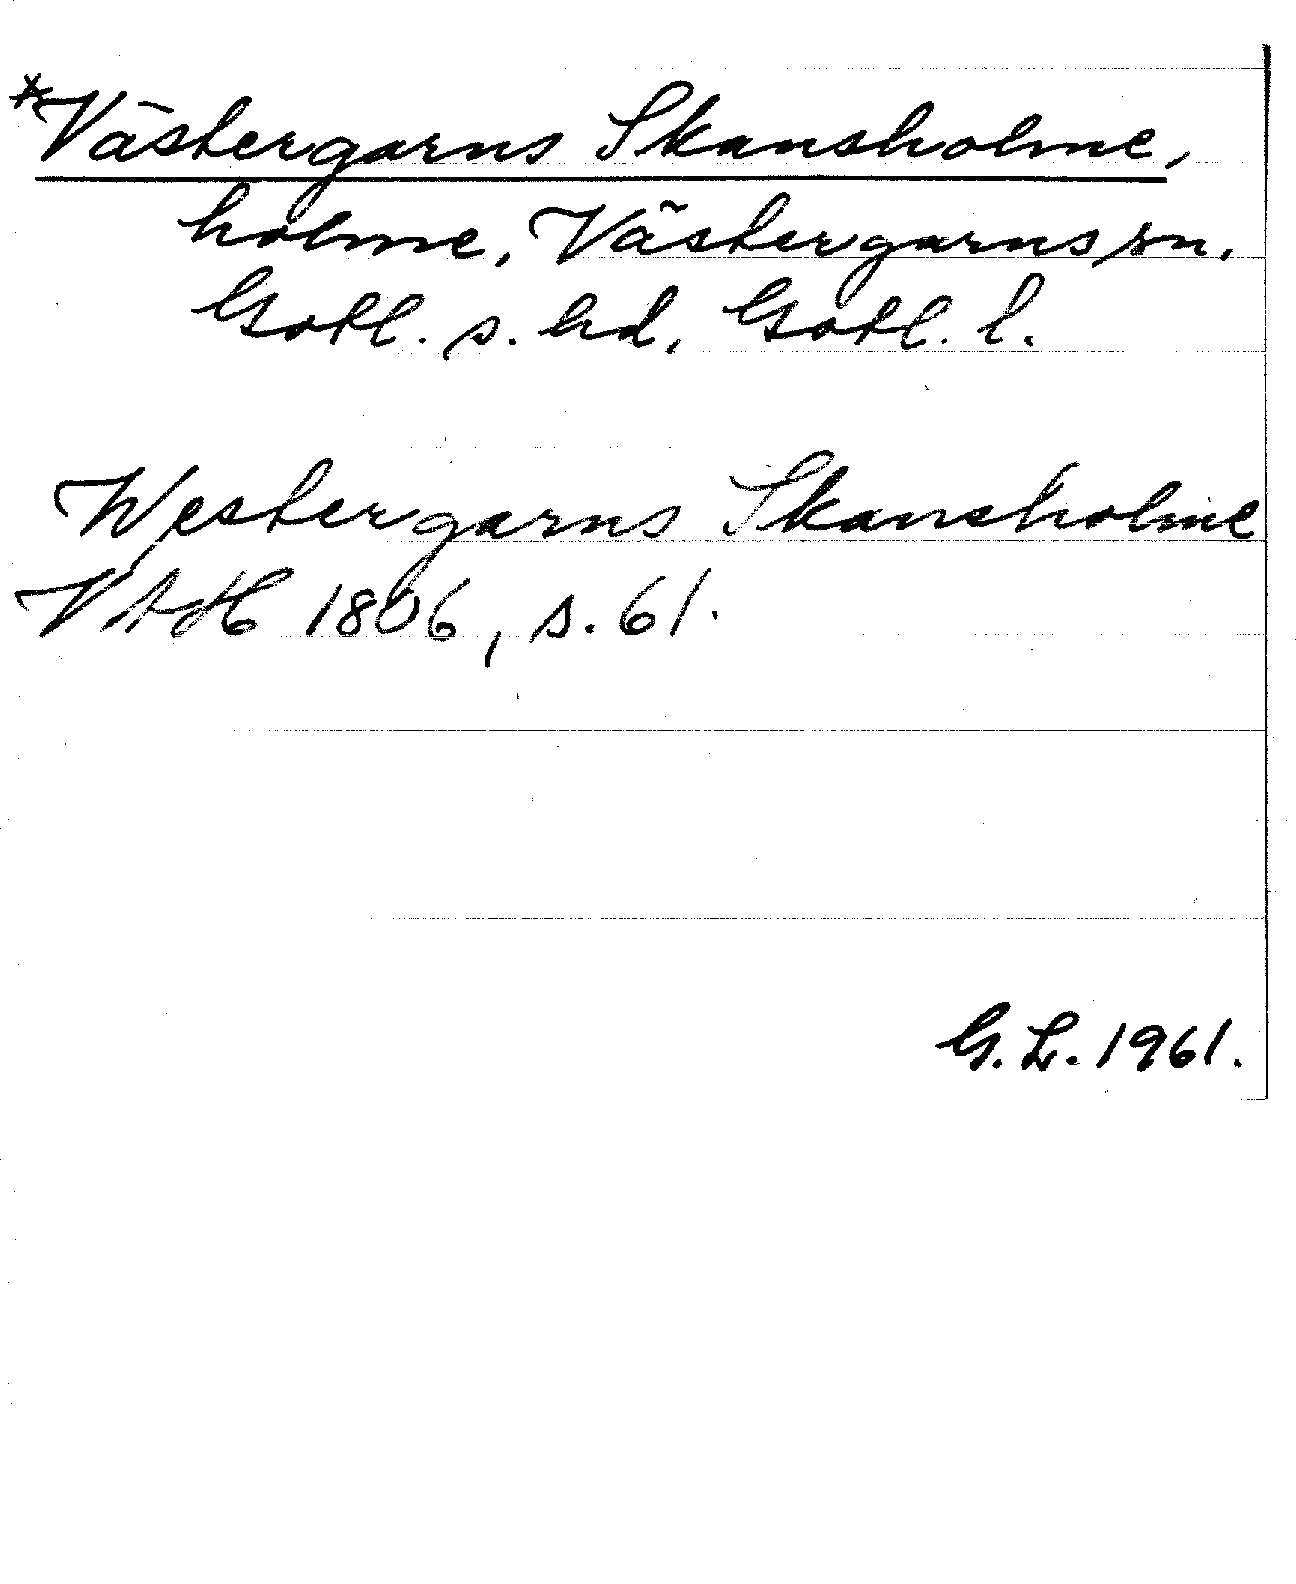 *Västergarns Skansholme,
holme, Västergarns sn.
Gotl. s. hd, Gotl. l.
Westergarns Skansholme
VAH 1806, s. 61.
G. L. 1961.